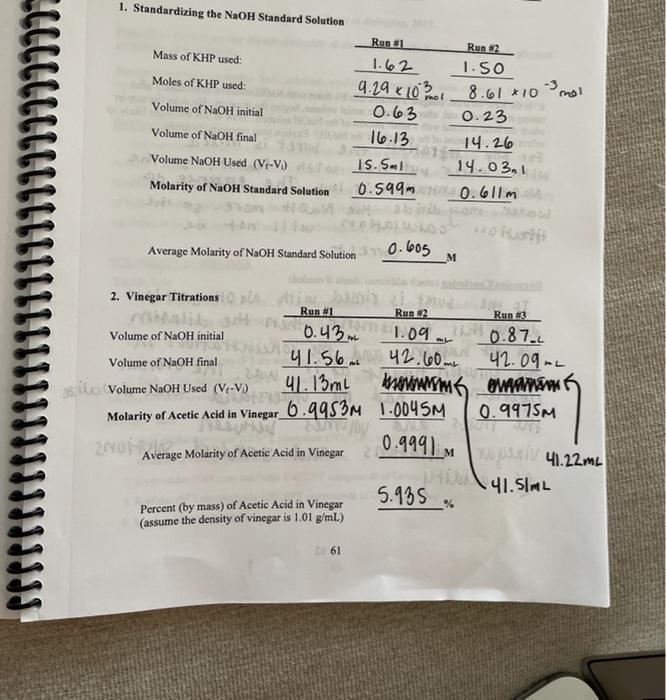 1. Standardizing the NaOH Standard Solution
Run #1 Run #2
Mass of KHP used: 1.62 1.50
Moles of KHP used: 9.29 x 10^-3 mol 8.61 x 10^-3 mol
Volume of NaOH initial 0.63 0.23
Volume of NaOH final 16.13 14.26
Volume NaOH Used (Vf-Vi) 15.5ml 14.03ml
Molarity of NaOH Standard Solution 0.599m 0.611m
Average Molarity of NaOH Standard Solution 0.605 M
2. Vinegar Titrations
Run #1 Run #2 Run #3
Volume of NaOH initial 0.43mL 1.09 mL 0.87mL
Volume of NaOH final 41.56mL 42.60mL 42.09mL
Volume NaOH Used (Vf-Vi) 41.13mL
Molarity of Acetic Acid in Vinegar 0.9953M 1.0045M 0.9975M
Average Molarity of Acetic Acid in Vinegar 0.9991 M
41.22mL
41.51mL
Percent (by mass) of Acetic Acid in Vinegar 5.935 %
(assume the density of vinegar is 1.01 g/mL)
61